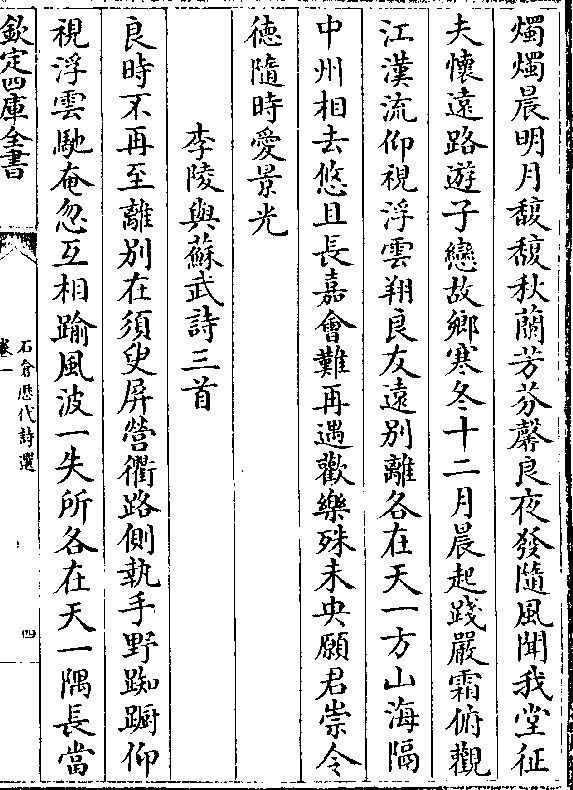 燭燭晨明月馥馥秋蘭芳芬馨良夜發隨風聞我堂征
夫懷遠路遊子戀故鄉寒冬十二月晨起踐嚴霜俯觀
江漢流仰視浮雲翔良友遠別離各在天一方山海隔
中州相去悠且長嘉會難再遇歡樂殊未央願君崇令
德隨時愛景光
李陵與蘇武詩三首
良時不再至離別在須臾屏營衢路側執手野踟躕仰
視浮雲馳奄忽互相踰風波一失所各在天一隅長當
欽定四庫全書
石倉歷代詩選
卷一
四